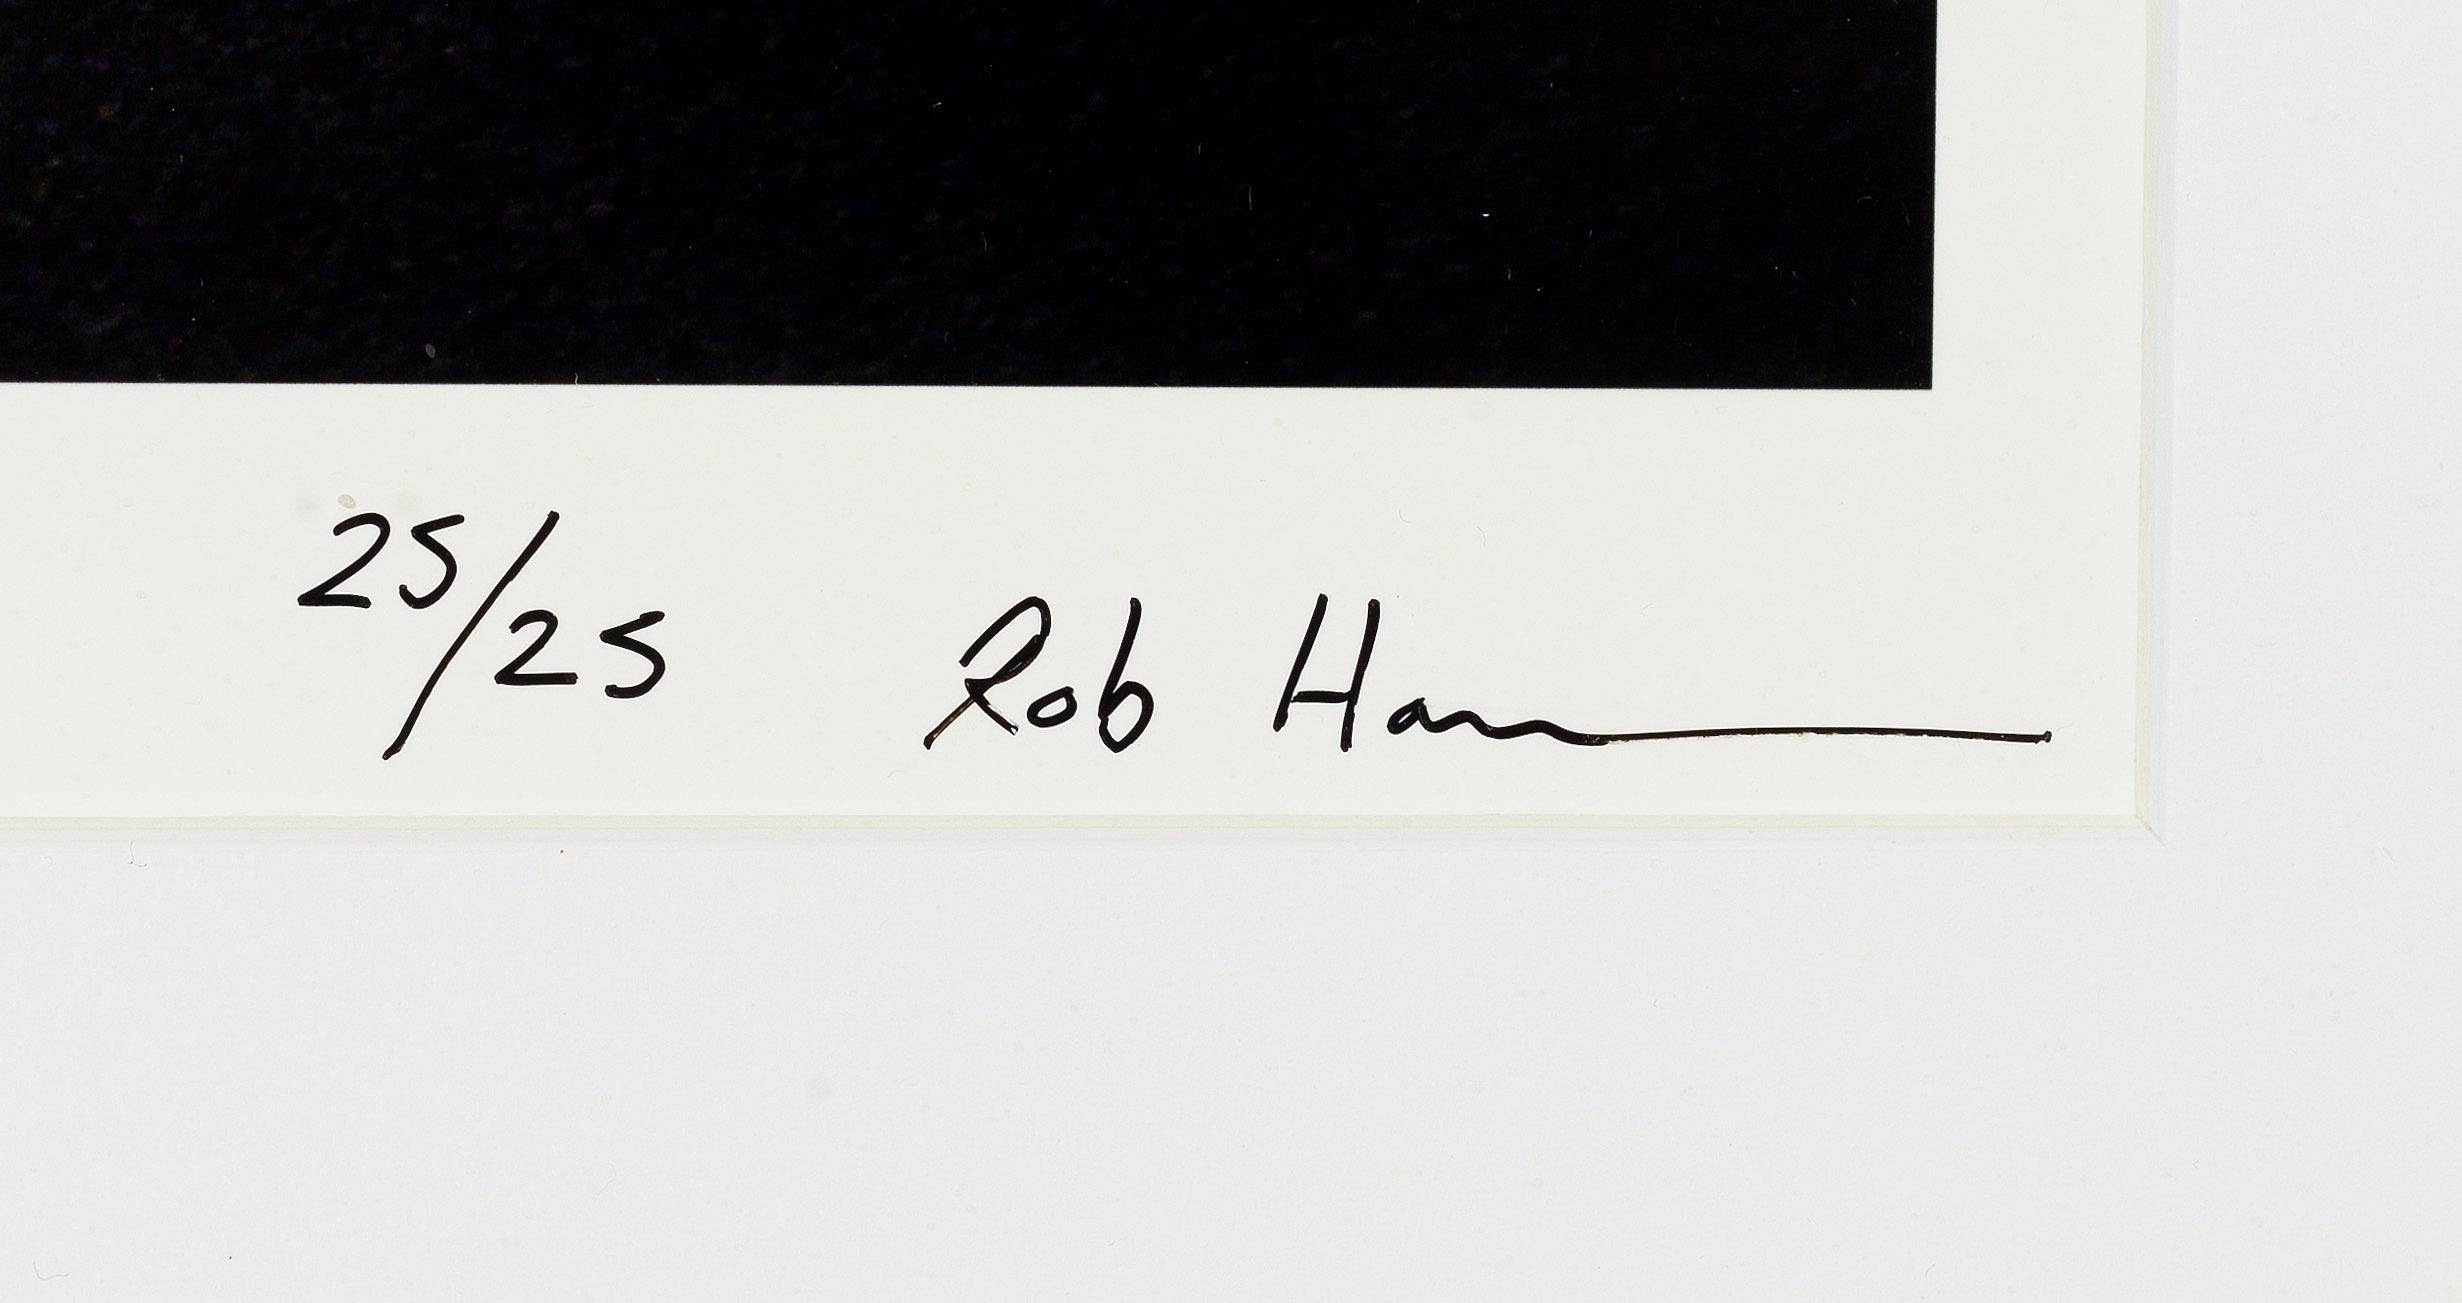 25/25 Rob Han